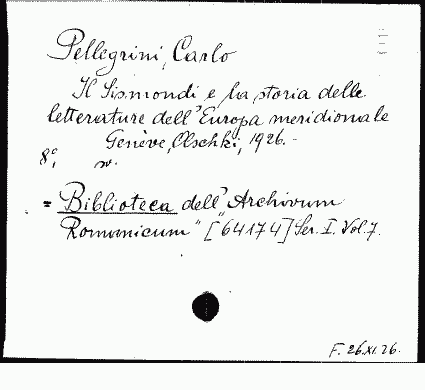 Pellegrini, Carlo
Il Sismondi e la storia delle
letterature dell'Europa meridionale
Genève, Olschki, 1926.-
8°,
= Biblioteca dell' Archivum
Romanicum" [64174] Ser. I. Vol. 7.
F. 26.XI.26.